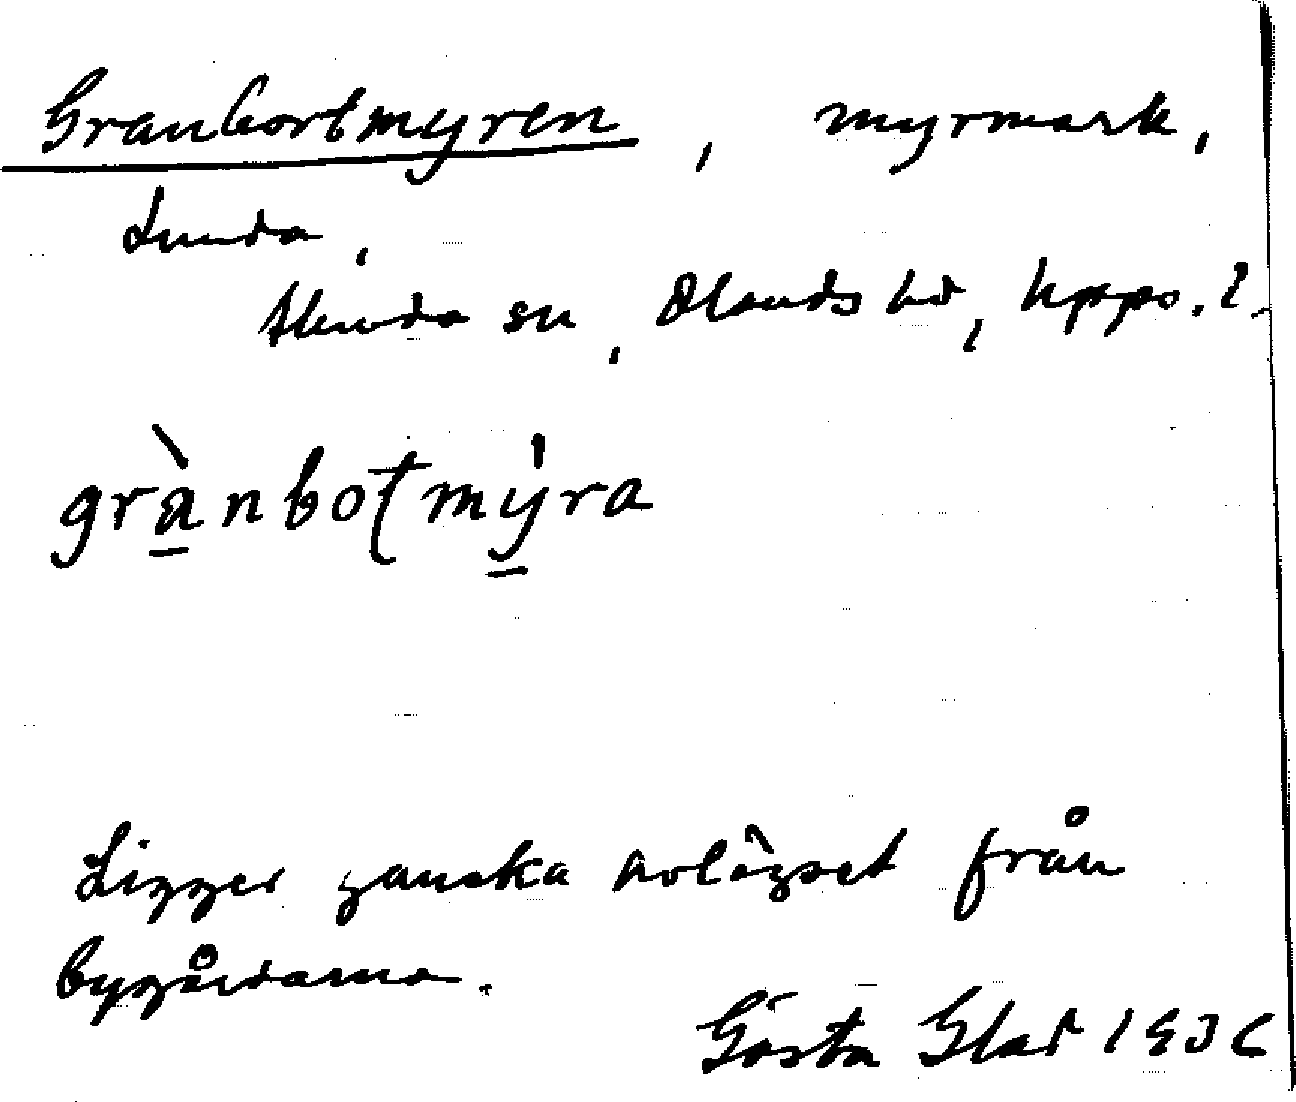 Granbortmyren, myrmark,
Lunda,
Alunda sn, Olands hd, Upps. l.
grànboʈmýra
Ligger ganska avlägset från
bygårdarna.
Gösta Glad 1936